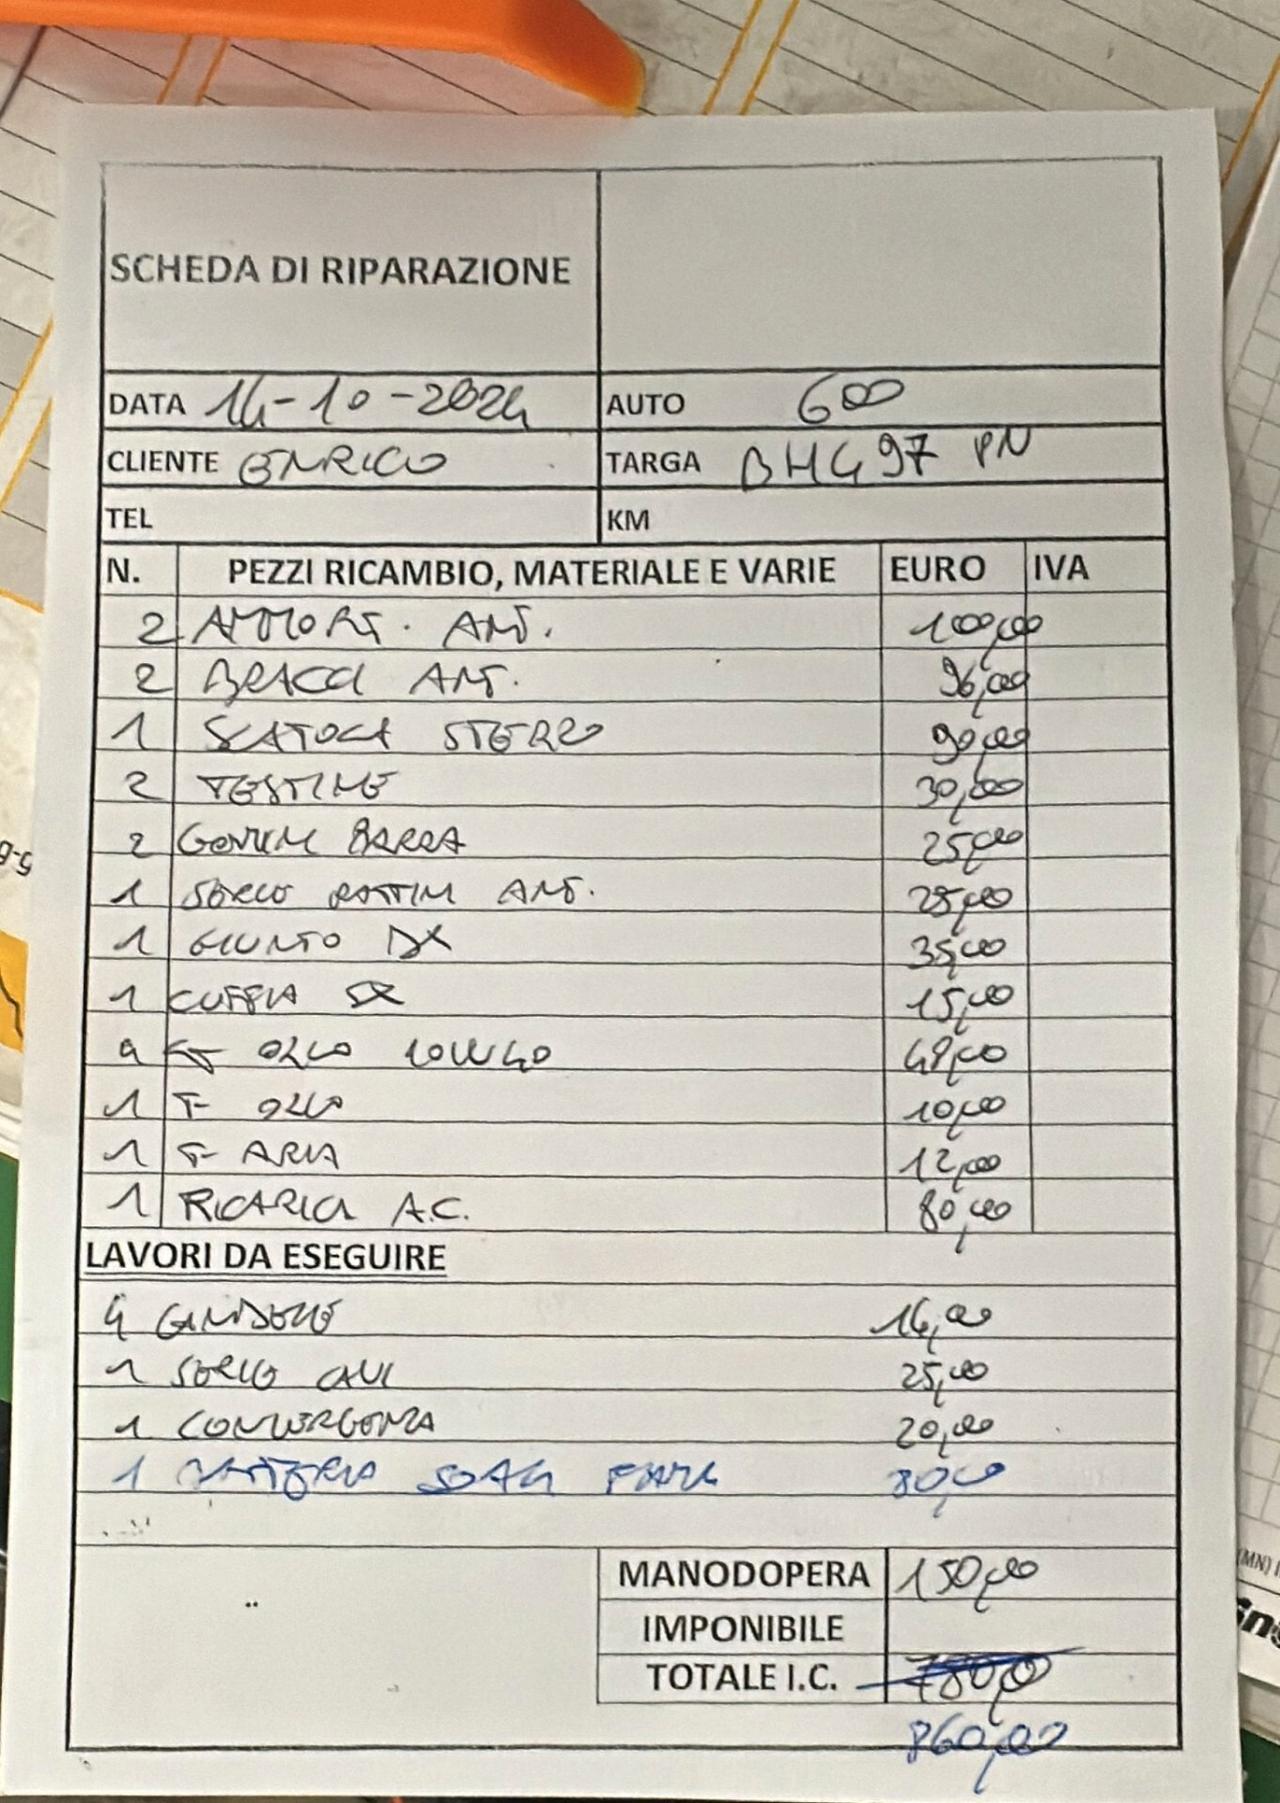 SCHEDA DI RIPARAZIONE
DATA 14-10-2024 AUTO 600
CLIENTE ENRICO TARGA BH497 PN
TEL KM
N. PEZZI RICAMBIO, MATERIALE E VARIE EURO IVA
2 AMMORT. ANT. 100,00
2 BRACCI ANT. 96,00
1 SCATOLA STERZO 90,00
2 TESTINE 30,00
2 GOMMINI BARRA 25,00
1 SERIE PATTINI ANT. 25,00
1 GIUNTO DX 35,00
1 CUFFIA SX 15,00
4 LT OLIO 10W40 48,00
1 F OLIO 10,00
1 F ARIA 12,00
1 RICARICA A.C. 80,00
LAVORI DA ESEGUIRE
4 CANDELE 14,00
1 SERIE CAVI 25,00
1 CONVERGENZA 20,00
1 BATTERIA 50AH 80,00
MANODOPERA 150,00
IMPONIBILE
TOTALE I.C. 780,0
860,00